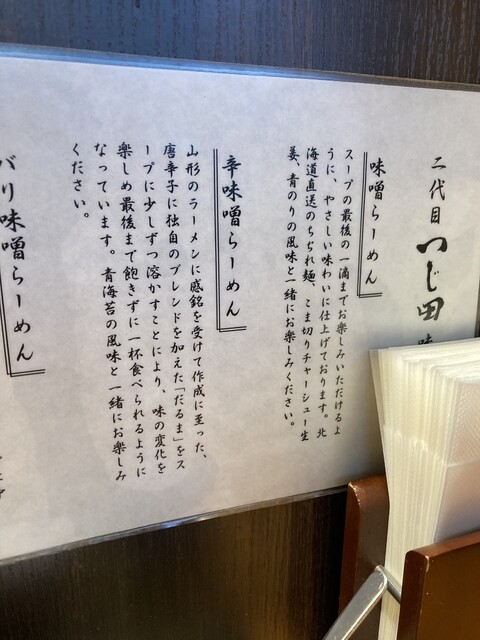 二代目 つじ田 味
味噌らーめん
スープの最後の一滴までお楽しみいただけるよ
うに、やさしい味わいに仕上げております。北
海道直送のちぢれ麺、こま切りチャーシュー生
姜、青のりの風味と一緒にお楽しみください。
辛味噌らーめん
山形のラーメンに感銘を受けて作成に至った、
唐辛子に独自のブレンドを加えた「だるま」をス
ープに少しずつ溶かすことにより、味の変化を
楽しめ最後まで飽きずに一杯食べられるように
なっています。青海苔の風味と一緒にお楽しみ
ください。
バリ味噌らーめん